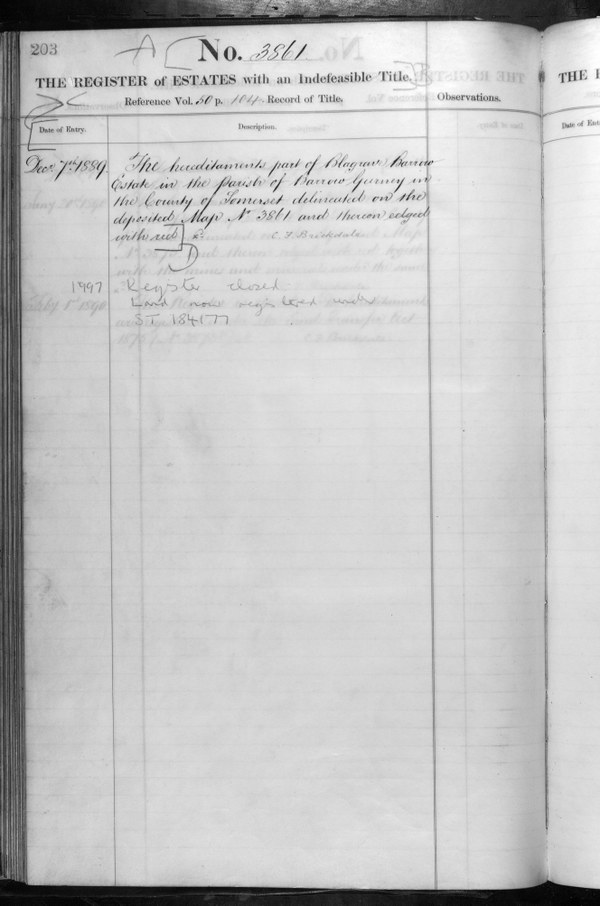 203
A
No. 3861
THE REGISTER of ESTATES with an Indefeasible Title.
Reference Vol. 50 p. 104 Record of Title.
Observations.
Date of Entry.
Description.
Decr 7th 1889
The hereditaments part of Blagrave Barrow
Estate in the Parish of Barrow Gurney in
the County of Somerset delineated on the
deposited Map No 3861 and thereon edged
with red
C. F. Brickdale
1997
Register closed
Land now registered under
ST 184177
THE R
Date of Ent